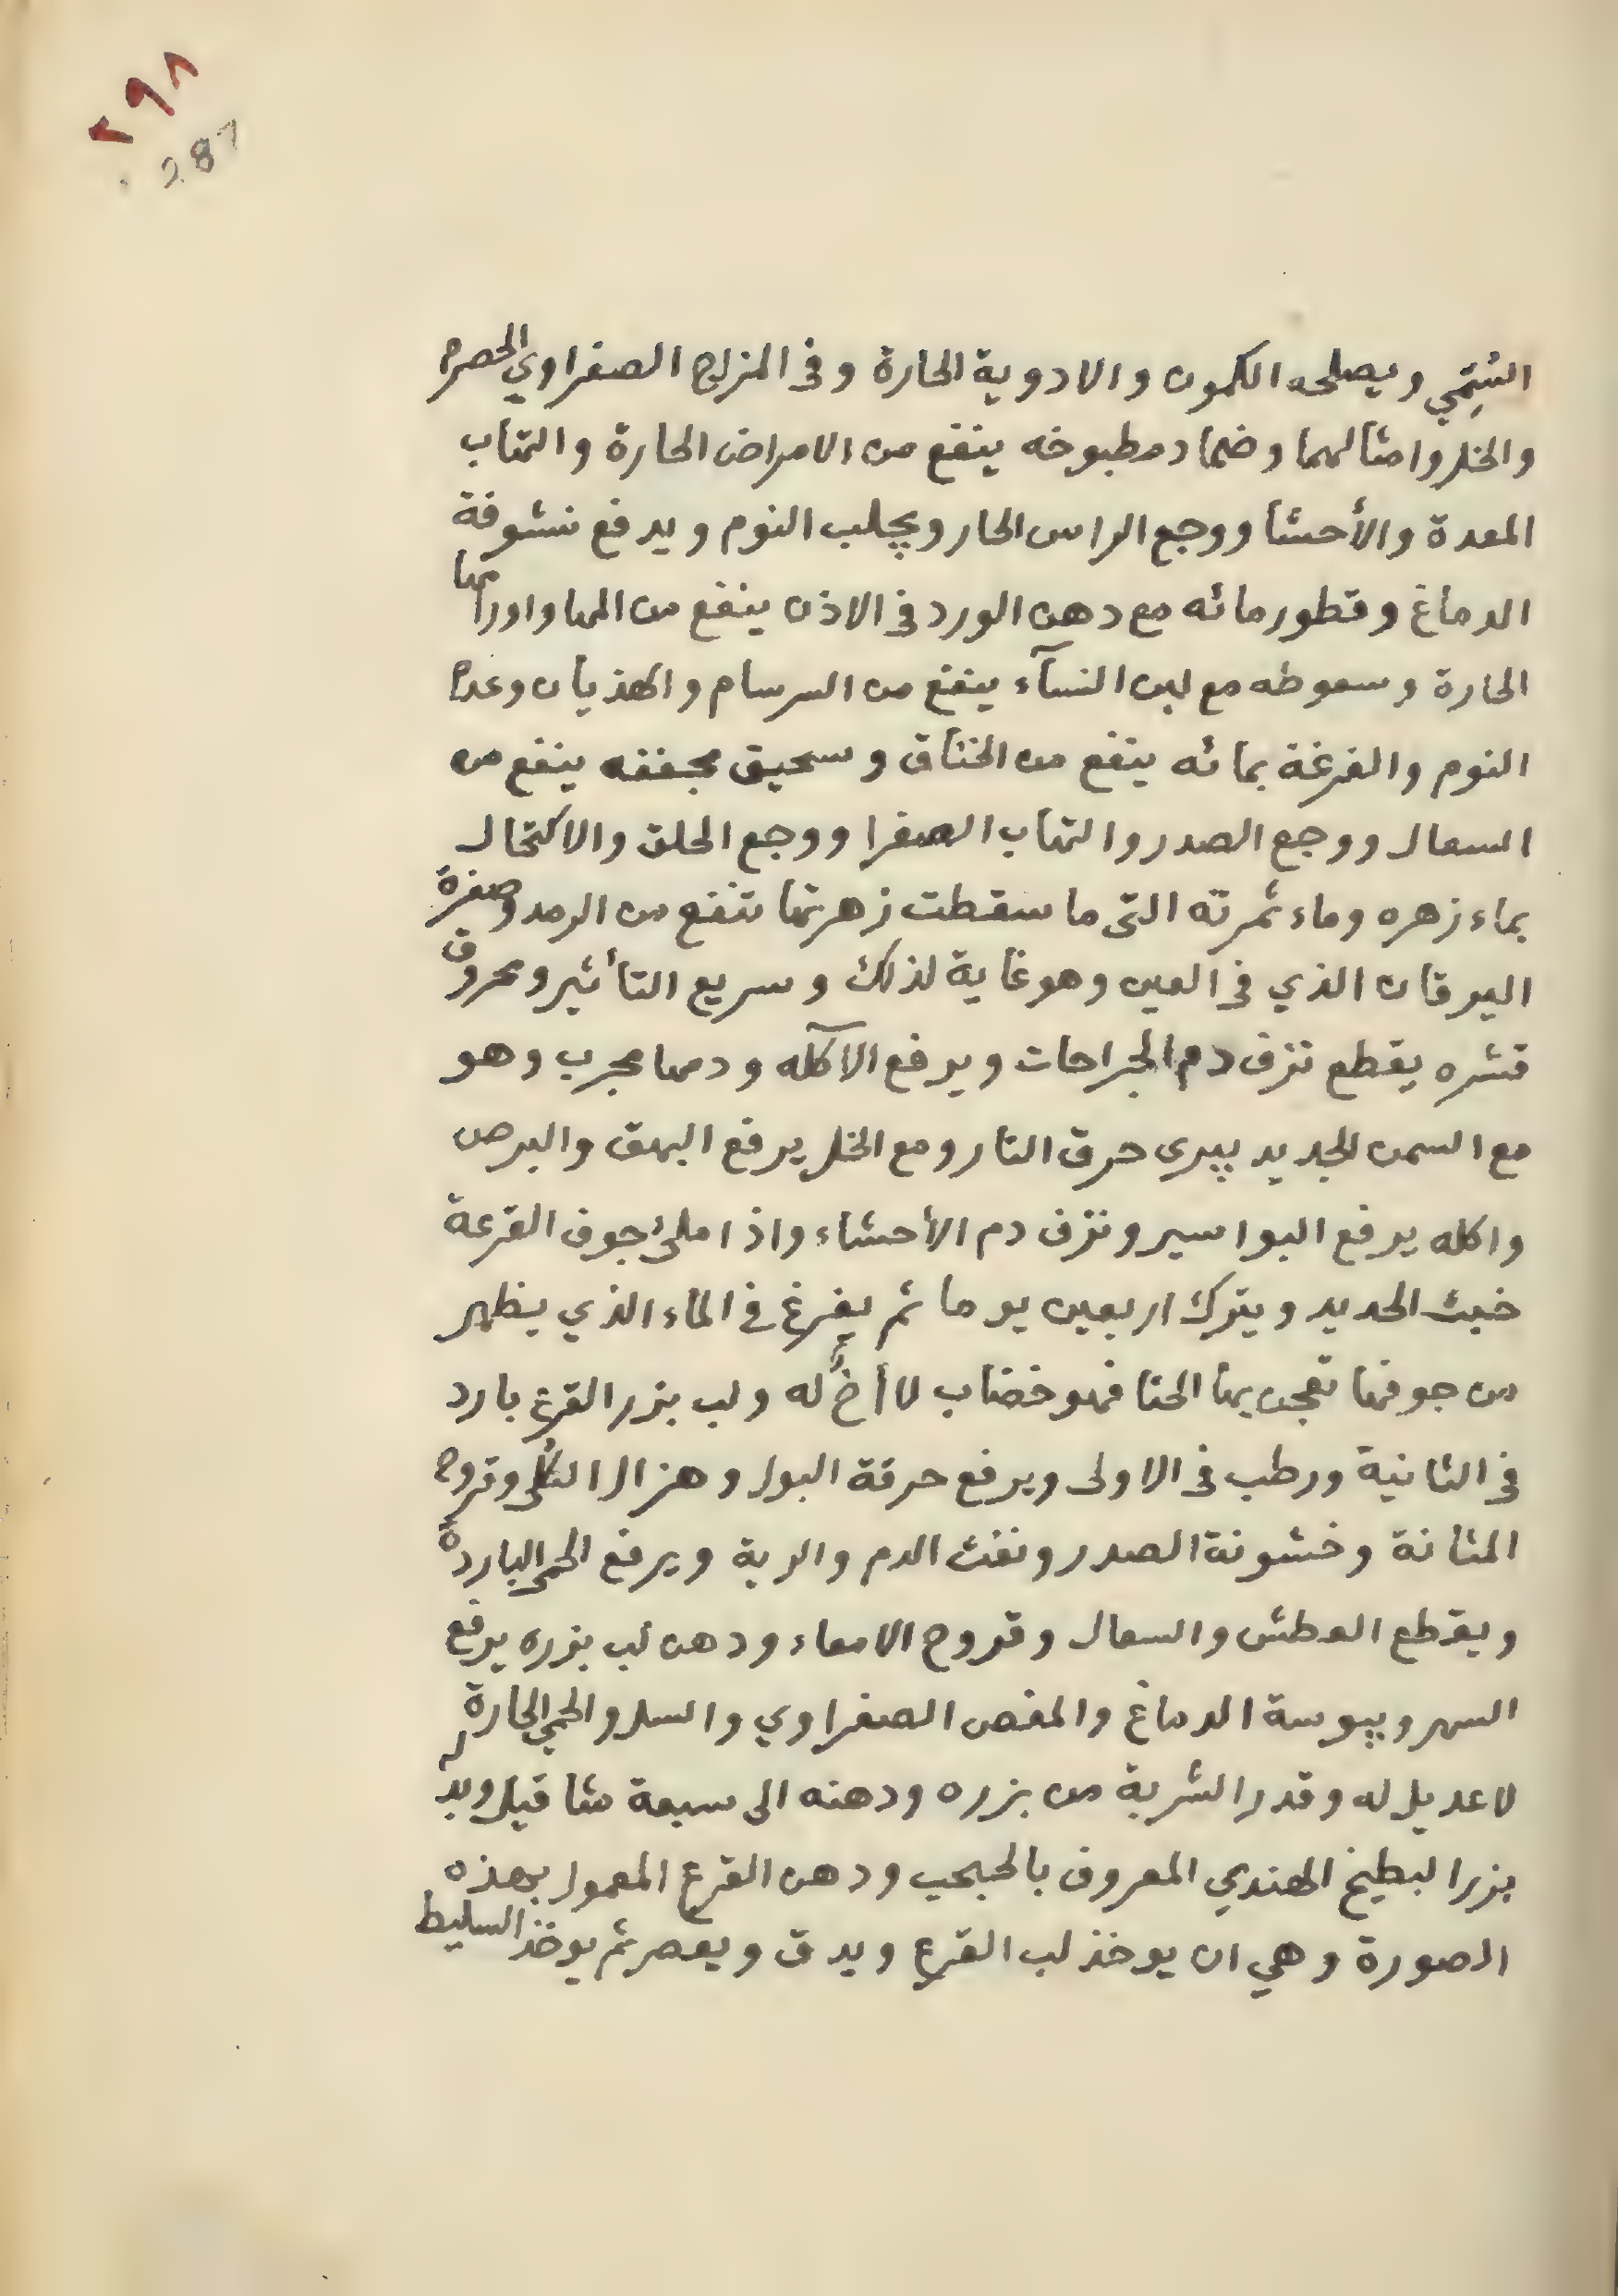 ٢٩٨
287
ويصلحه الكمون والادوية الحارة وفى المزاج الصفراوي الحصرم
والخل وامثالهما وضماد مطبوخه ينفع من الامراض الحارة والتهاب
المعدة والأحشا ووجع الراس الحار ويجلب النوم ويدفع نشوفة
الدماغ وقطور مائه مع دهن الورد فى الاذن ينفع من المها واورامها
الحارة وسعوطه مع لبن النسآء ينفع من السرسام والهذيان وعدم
النوم والغرغة بمائه ينفع من الخناق وسحيق مجففه ينفع من
السعال ووجع الصدر والتهاب الصفرا ووجع الحلق والاكتحال
بماء زهره وماء ثمرته التى ما سقطت زهرتها تنفع من الرمد وصفرة
اليرقان الذي فى العين وهو غاية لذلك وسريع التأثير ومحروق
قشره يقطع نزف دم الجراحات ويدفع الآكله ودمها مجرب وهو
مع السمن الجديد يبرى حرق النار ومع الخل يرفع البهق والبرص
واكله يرفع البواسير ونزف دم الأحشاء واذا ملئ جوف القرعة
خبث الحديد ويترك اربعين يوما ثم يفرغ فى الماء الذي يظهر
من جوفها تعجن بها الحنا فهو خضاب لا له ولب بزر القرع بارد
فى الثانية ورطب فى الاولى ويرفع حرقة البول وهزال الكُلى وقروح
المثانة وخشونة الصدر ونفث الدم والرية ويرفع الحمى الباردة
ويقطع العطش والسعال وقروح الامعاء ودهن لب بزره يرفع
السهر ويبوسة الدماغ والمغص الصفراوي والسل والحمى الحارة
لا عديل له وقدر الشربة من بزره ودهنه الى سبعة مثاقيل وبدله
بزر البطيخ الهندي المعروف بالحبحب ودهن القرع المعمول بهذه
الصورة وهي ان يوخذ لب القرع ويدق ويعصر ثم يوخذ السليط